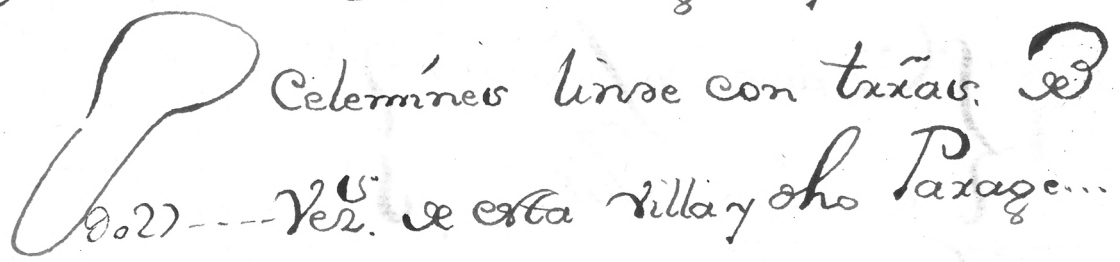 Celemínes linde con trr̃as. de
Vez.ˢ de esta villa y dho Parage...